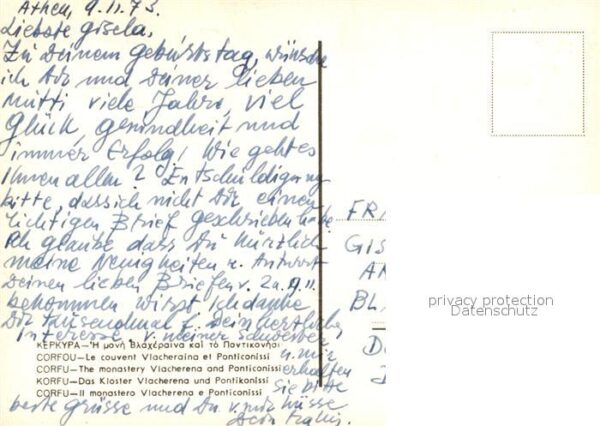 Athen, 9.11.73.
Liebste Gisela,
Zu Deinem Geburtstag, wünsche
ich Dir und Deiner lieben
Mutti viele Jahre, viel
Glück, gesundheit und
immer Erfolg! Wie gehts
Ihnen allen? Entschuldigung
bitte, dass ich nicht Dir einen
richtigen Brief geschrieben habe.
Ich glaube dass Du kürzlich
meine Neuigkeiten u. Antwort
Deinen lieben Briefen v. 9.11.
bekommen wirst. Ich danke
Dir tausendmal f. Dein herzliches
Interesse v. meiner Schwester
u. mir
ΚΕΡΚΥΡΑ—Ἡ μονή Βλαχέραινα καί τό Ποντικονήσι
CORFOU—Le couvent Vlacheraina et Ponticonissi
CORFU—The monastery Vlacherena and Ponticonissi
KORFU—Das Kloster Vlacherena und Pontikonissi
CORFU—Il monastero Vlacherena e Ponticonissi
erhalten
sie bitte
beste grüsse und Du v. mir Küsse
FR
GIS
AM
BL
D
D
privacy protection
Datenschutz